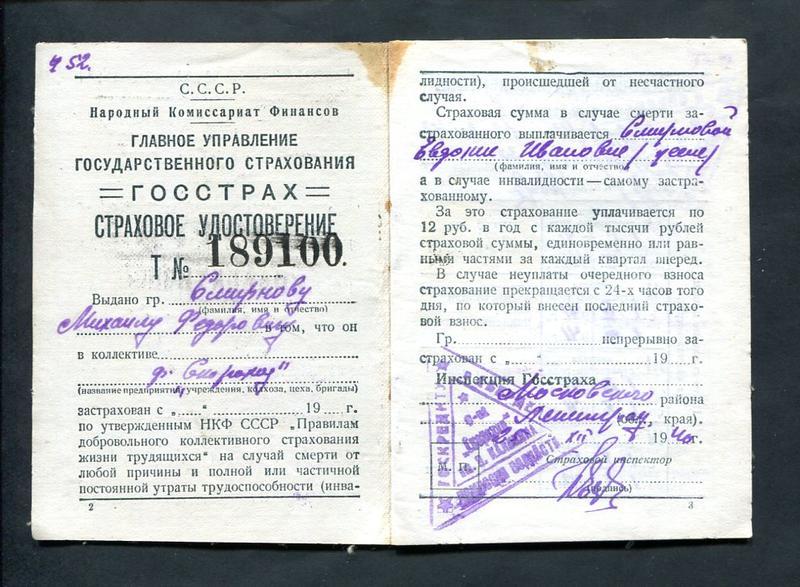 452.
С.С.С.Р.
Народный Комиссариат Финансов
ГЛАВНОЕ УПРАВЛЕНИЕ
ГОСУДАРСТВЕННОГО СТРАХОВАНИЯ
=ГОССТРАХ=
СТРАХОВОЕ УДОСТОВЕРЕНИЕ
Т № 189100.
Выдано гр. Смирнову
(фамилия, имя и отчество)
Михаилу Федоровичу в том, что он
в коллективе
ф. "Скороход"
(название предприятия, учреждения, колхоза, цеха, бригады)
застрахован с „ “ 19 г.
по утвержденным НКФ СССР „Правилам
добровольного коллективного страхования
жизни трудящихся“ на случай смерти от
любой причины и полной или частичной
постоянной утраты трудоспособности (инва-
2
лидности), происшедшей от несчастного
случая.
Страховая сумма в случае смерти за-
страхованного выплачивается Смирновой
Евдокие Ивановне
(фамилия, имя и отчество)
а в случае инвалидности—самому застра-
хованному.
За это страхование уплачивается по
12 руб. в год с каждой тысячи рублей
страховой суммы, единовременно или рав-
ными частями за каждый квартал вперед.
В случае неуплаты очередного взноса
страхование прекращается с 24-х часов того
дня, по который внесен последний страхо-
вой взнос.
Гр. непрерывно за-
страхован с „ “ 19 г.
Инспекция Госстраха
Московского района
Ленинград (обл., края).
XII 1940г.
М. П. Страховой инспектор
(подпись)
3